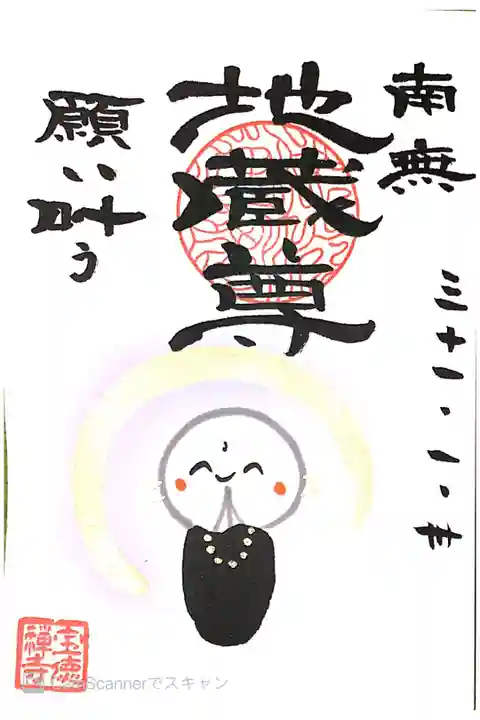 南無
三十一・一・廿
地蔵尊
願い叶う
宝徳
禅寺
CamScannerでスキャン